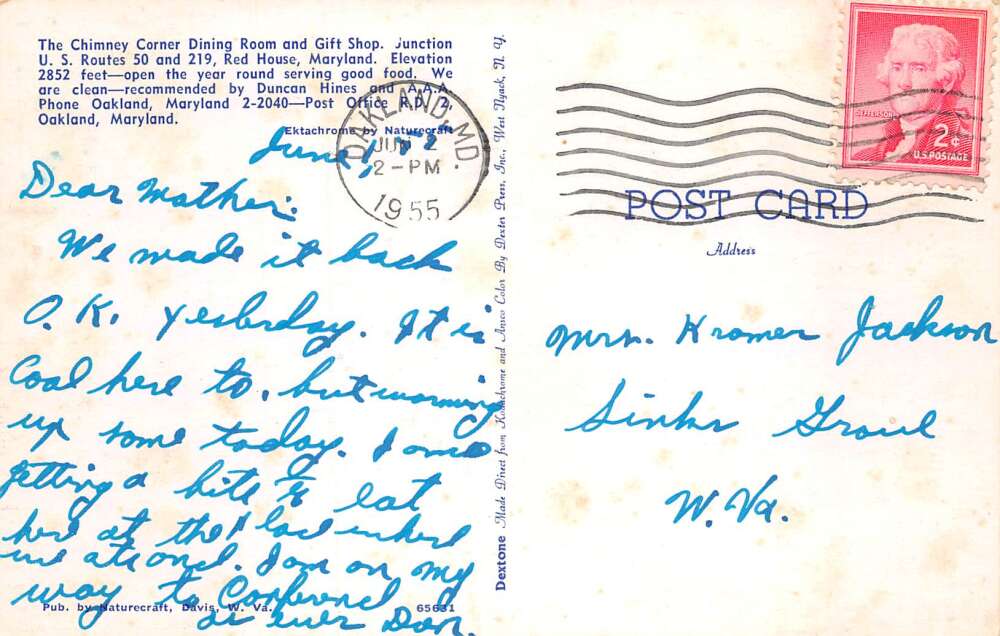 The Chimney Corner Dining Room and Gift Shop. Junction
U. S. Routes 50 and 219, Red House, Maryland. Elevation
2852 feet—open the year round serving good food. We
are clean—recommended by Duncan Hines and A.A.A.
Phone Oakland, Maryland 2-2040—Post Office R.D. 2,
Oakland, Maryland.
Ektachrome by Naturecraft
June
Dear Mother:
We made it back
O.K. yesterday. It is
Cool here to, but warming
up some today. I am
getting a bite to eat
here at the place where
we ate once. I am on my
way to
as ever Dan.
Pub. by Naturecraft, Davis, W. Va.
65631
Dextone Made Direct from Kodachrome and Ansco Color By Dexter Press, Inc., West Nyack, N. Y.
OAKLAND, MD.
JUN 2
2-PM
1955
JEFFERSON
2¢
U.S. POSTAGE
POST CARD
Address
Mrs. Kramer Jackson
Sinks Grove
W. Va.